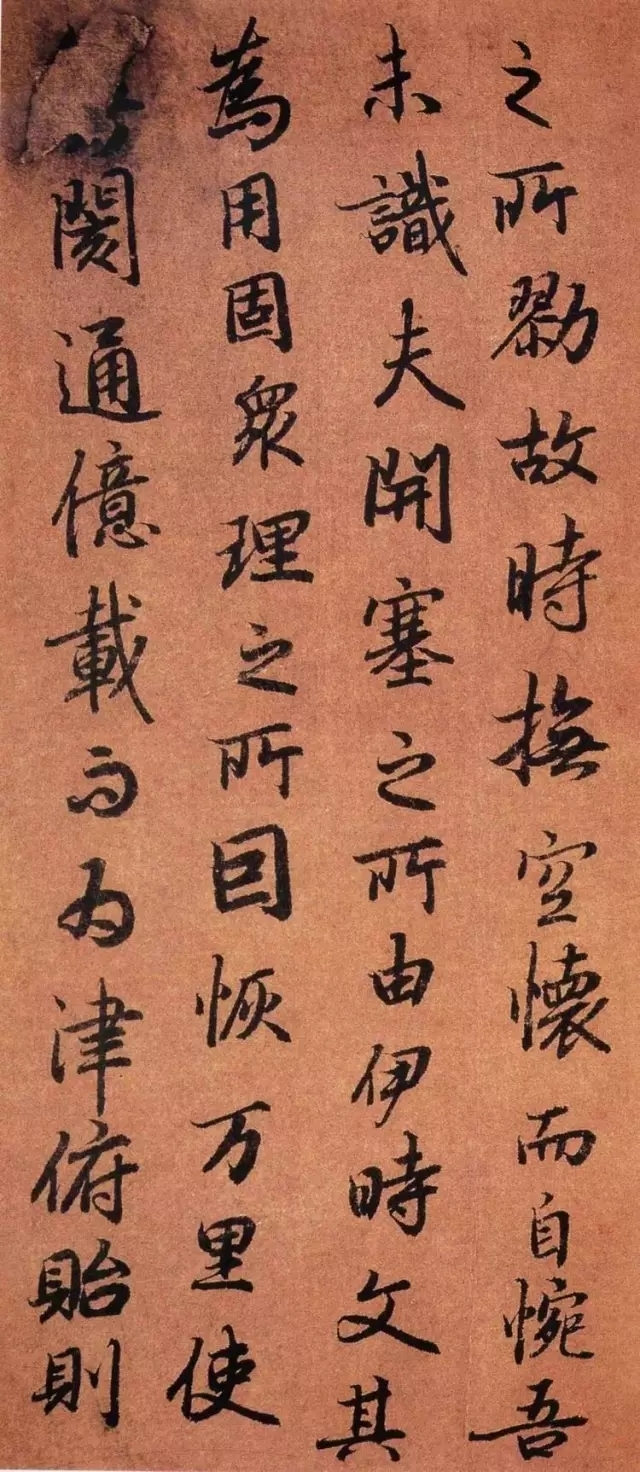 之所勠故時撫空懷而自惋吾
未識夫開塞之所由伊時文其
為用固衆理之所因恢万里使
閡通億載而為津俯貽則